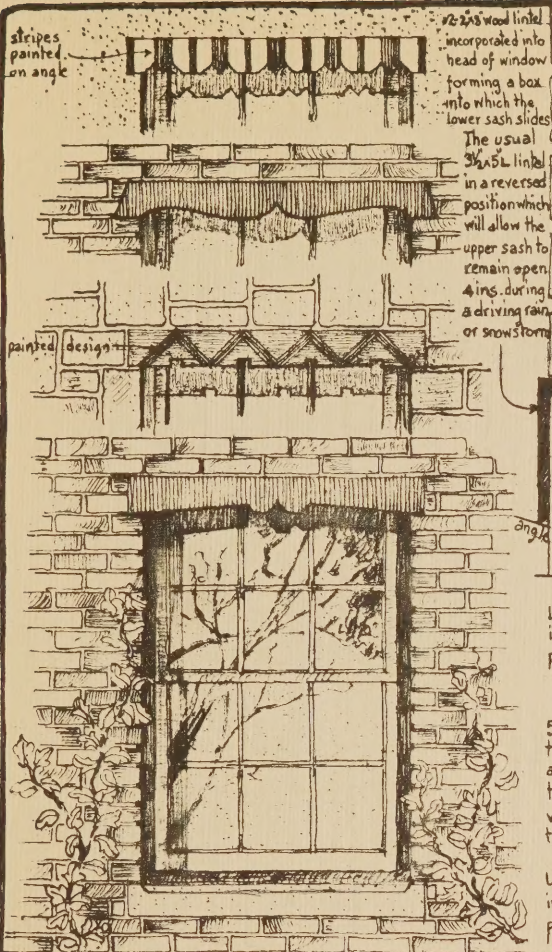 stripes
painted
on angle
2-2x8 wood lintel
incorporated into
head of window
forming a box
into which the
lower sash slides
The usual
3½x5L lintel
in a reversed
position which
will allow the
upper sash to
remain open
4 ins. during
a driving rain
or snowstorm
painted design
angle